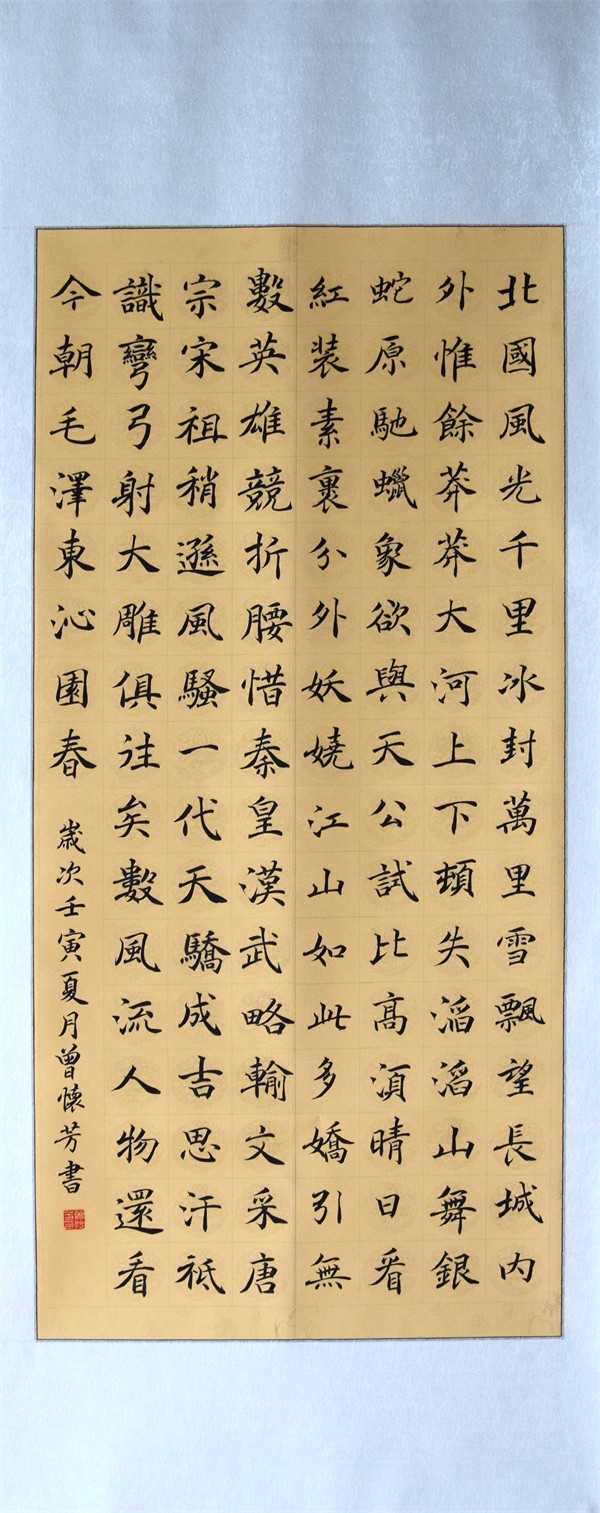 北國風光千里冰封萬里雪飄望長城内
外惟餘莽莽大河上下頓失滔滔山舞銀
蛇原馳蠟象欲與天公試比高湏晴日看
紅装素裹分外妖嬈江山如此多嬌引無
數英雄競折腰惜秦皇漢武略輸文采唐
宗宋祖稍遜風騷一代天驕成吉思汗祗
識彎弓射大雕俱往矣數風流人物還看
今朝毛澤東沁園春 歲次壬寅夏月曾懷芳書